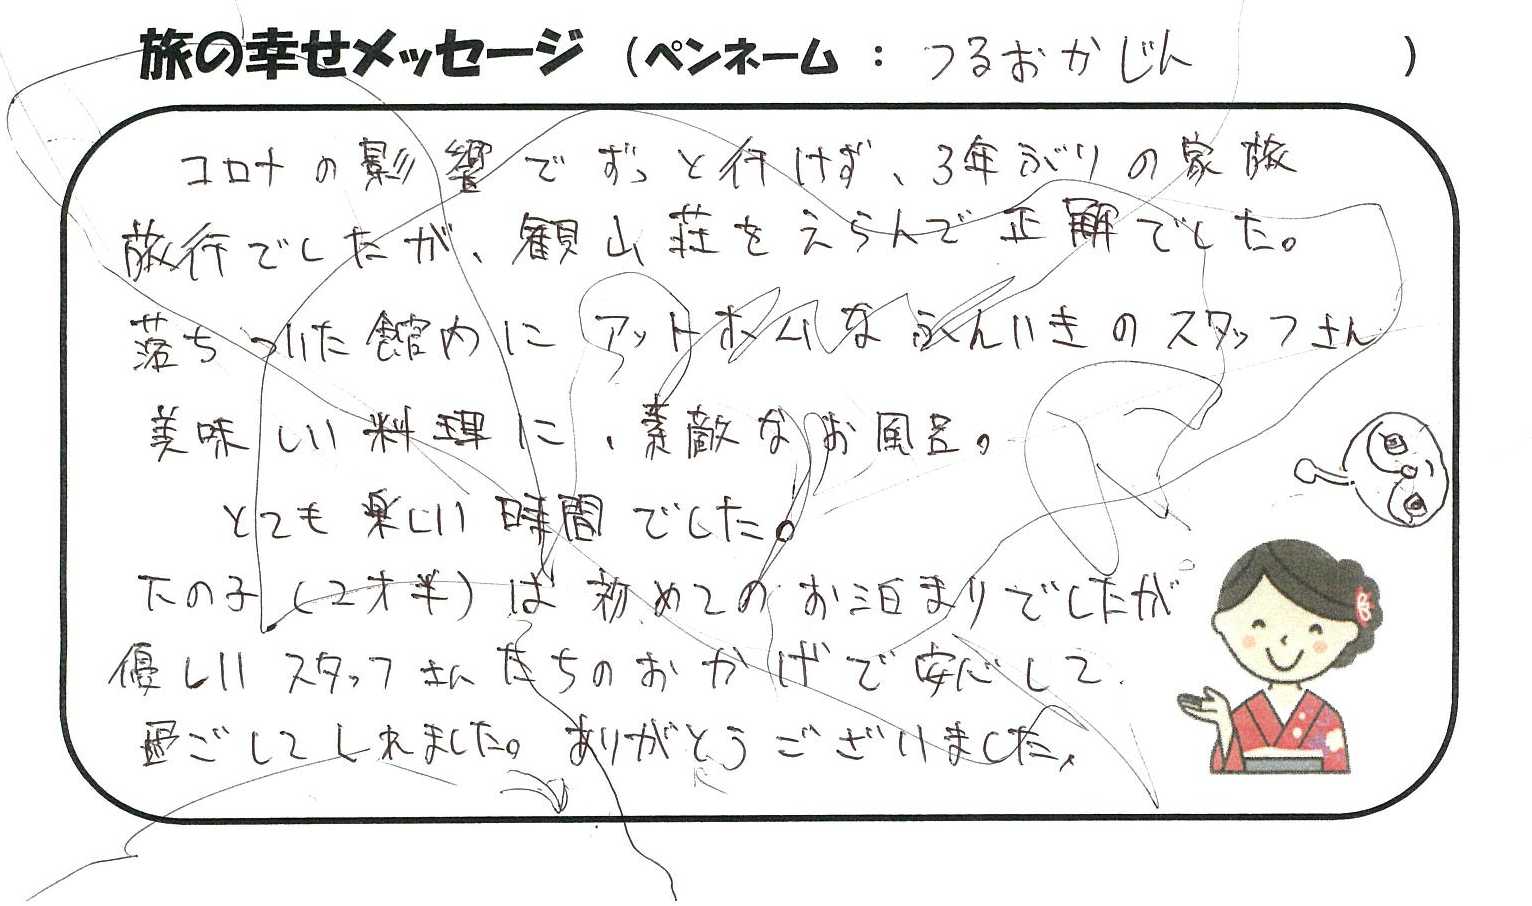 旅の幸せメッセージ （ペンネーム ： つるおかじん ）
コロナの影響でずっと行けず、3年ぶりの家族
旅行でしたが、観山荘をえらんで正解でした。
落ちついた館内にアットホームなふんいきのスタッフさん
美味しい料理に、素敵なお風呂。
とても楽しい時間でした。
下の子（2才半）は初めてのお泊まりでしたが
優しいスタッフさんたちのおかげで安心して
過ごしてしれました。ありがとうございました。